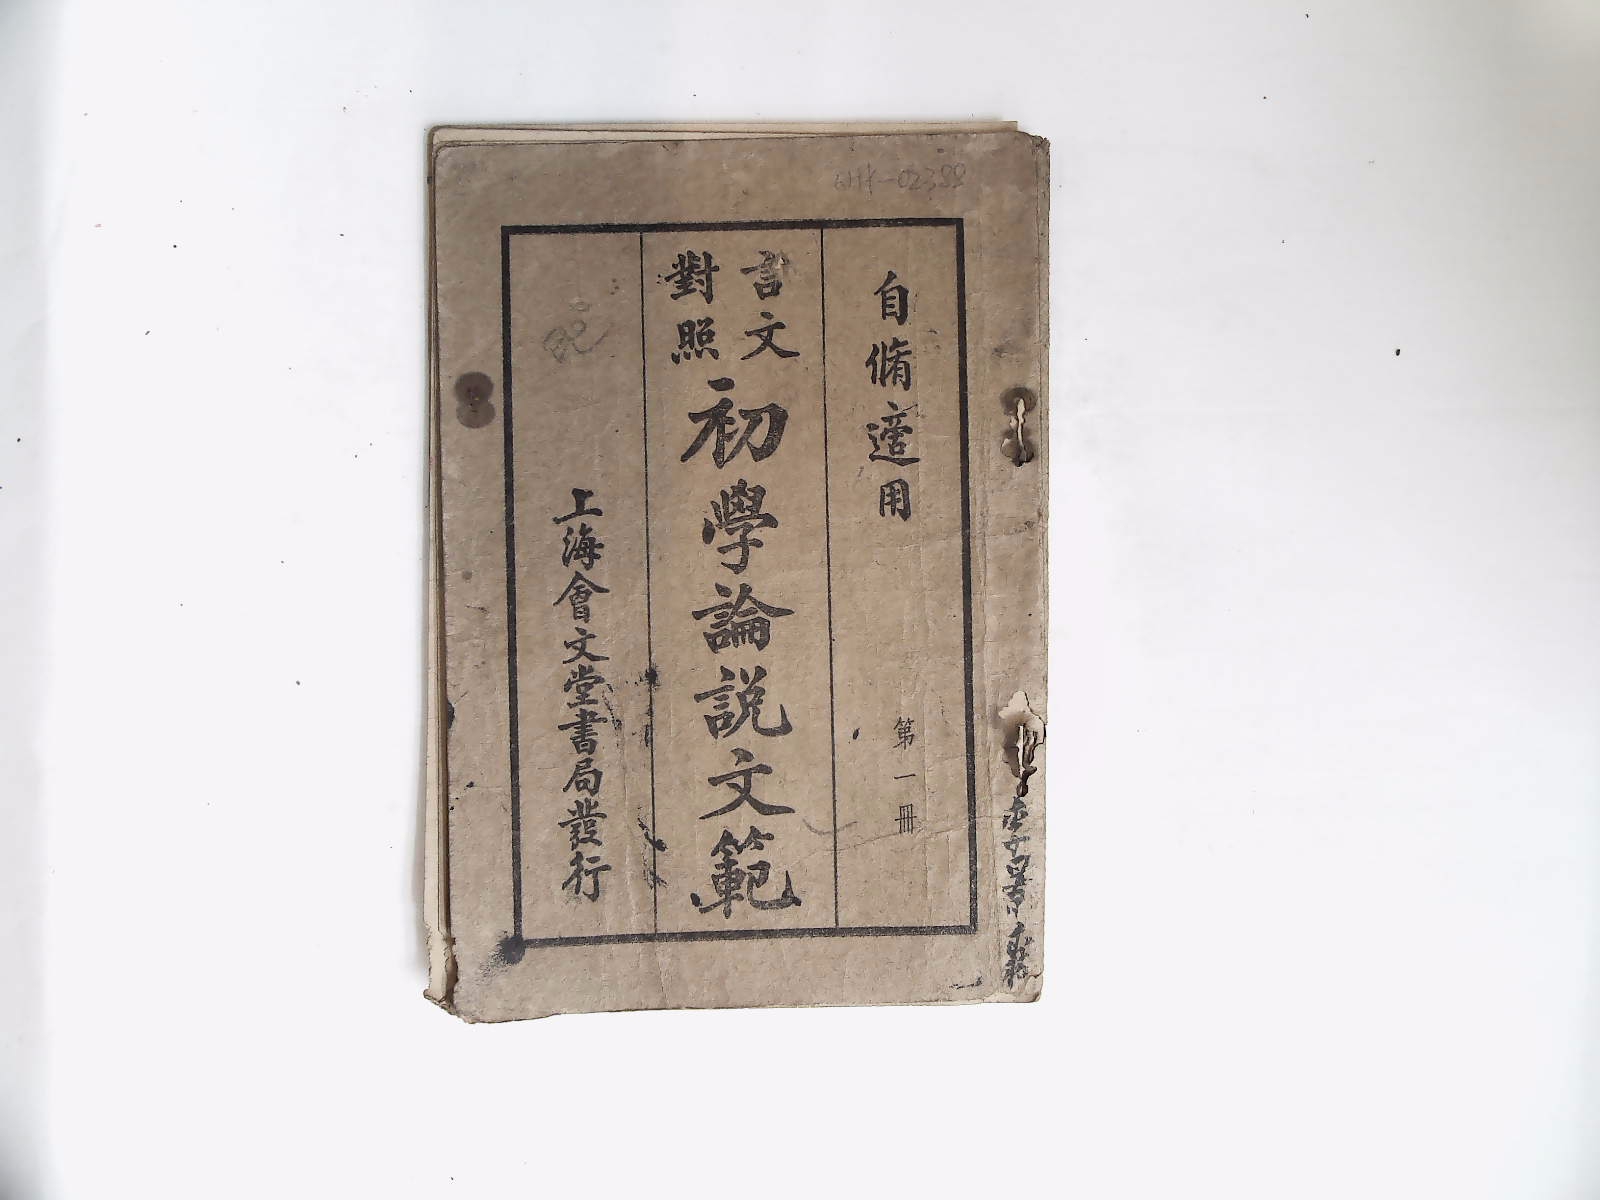 自脩適用
第一冊
言文
對照
初學論説文範
上海會文堂書局發行